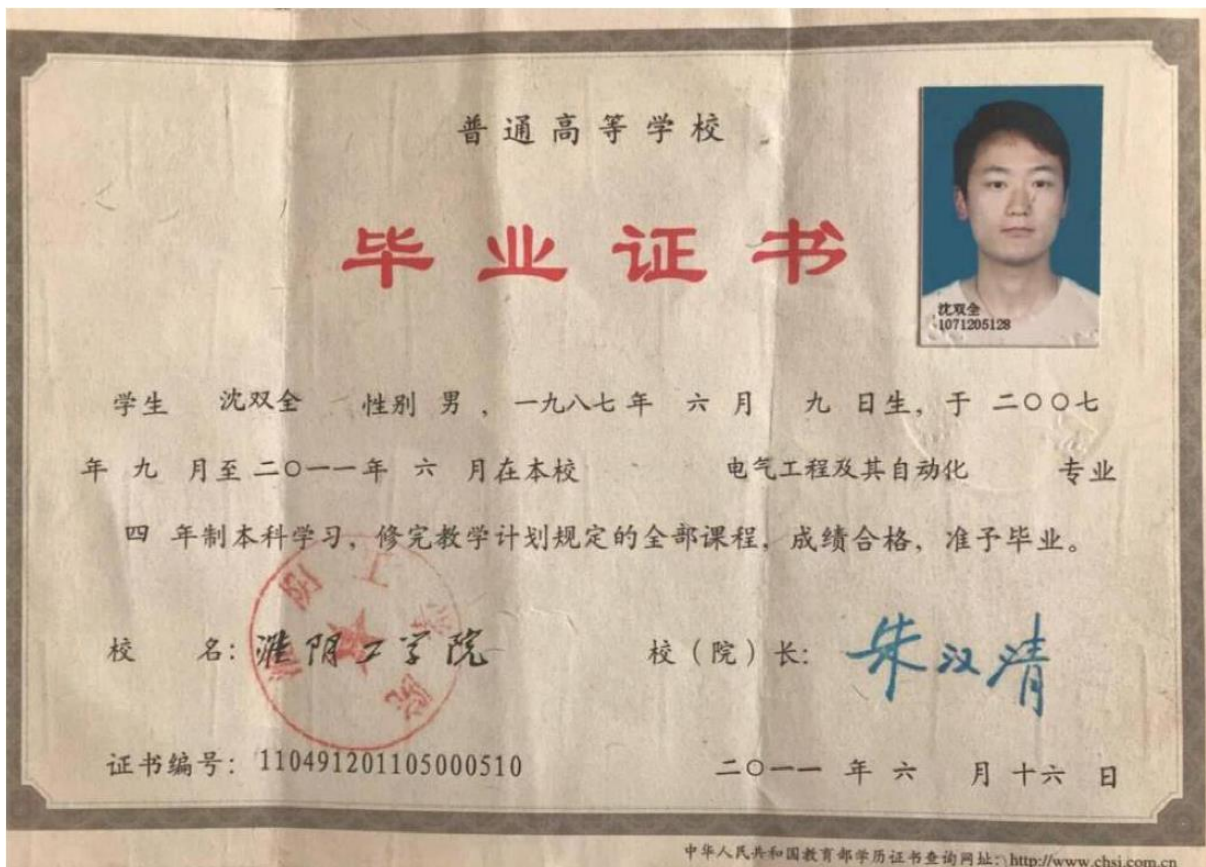 普通高等学校
毕业证书
沈双全
1071205128
学生 沈双全 性别 男，一九八七年 六 月 九 日生，于 二〇〇七
年 九 月至 二〇一一年 六 月在本校 电气工程及其自动化 专业
四 年制本科学习，修完教学计划规定的全部课程，成绩合格，准予毕业。
校 名：淮阴工学院 校（院）长：朱汉清
证书编号：110491201105000510 二〇一一 年 六 月 十六 日
中华人民共和国教育部学历证书查询网址：http://www.chsi.com.cn